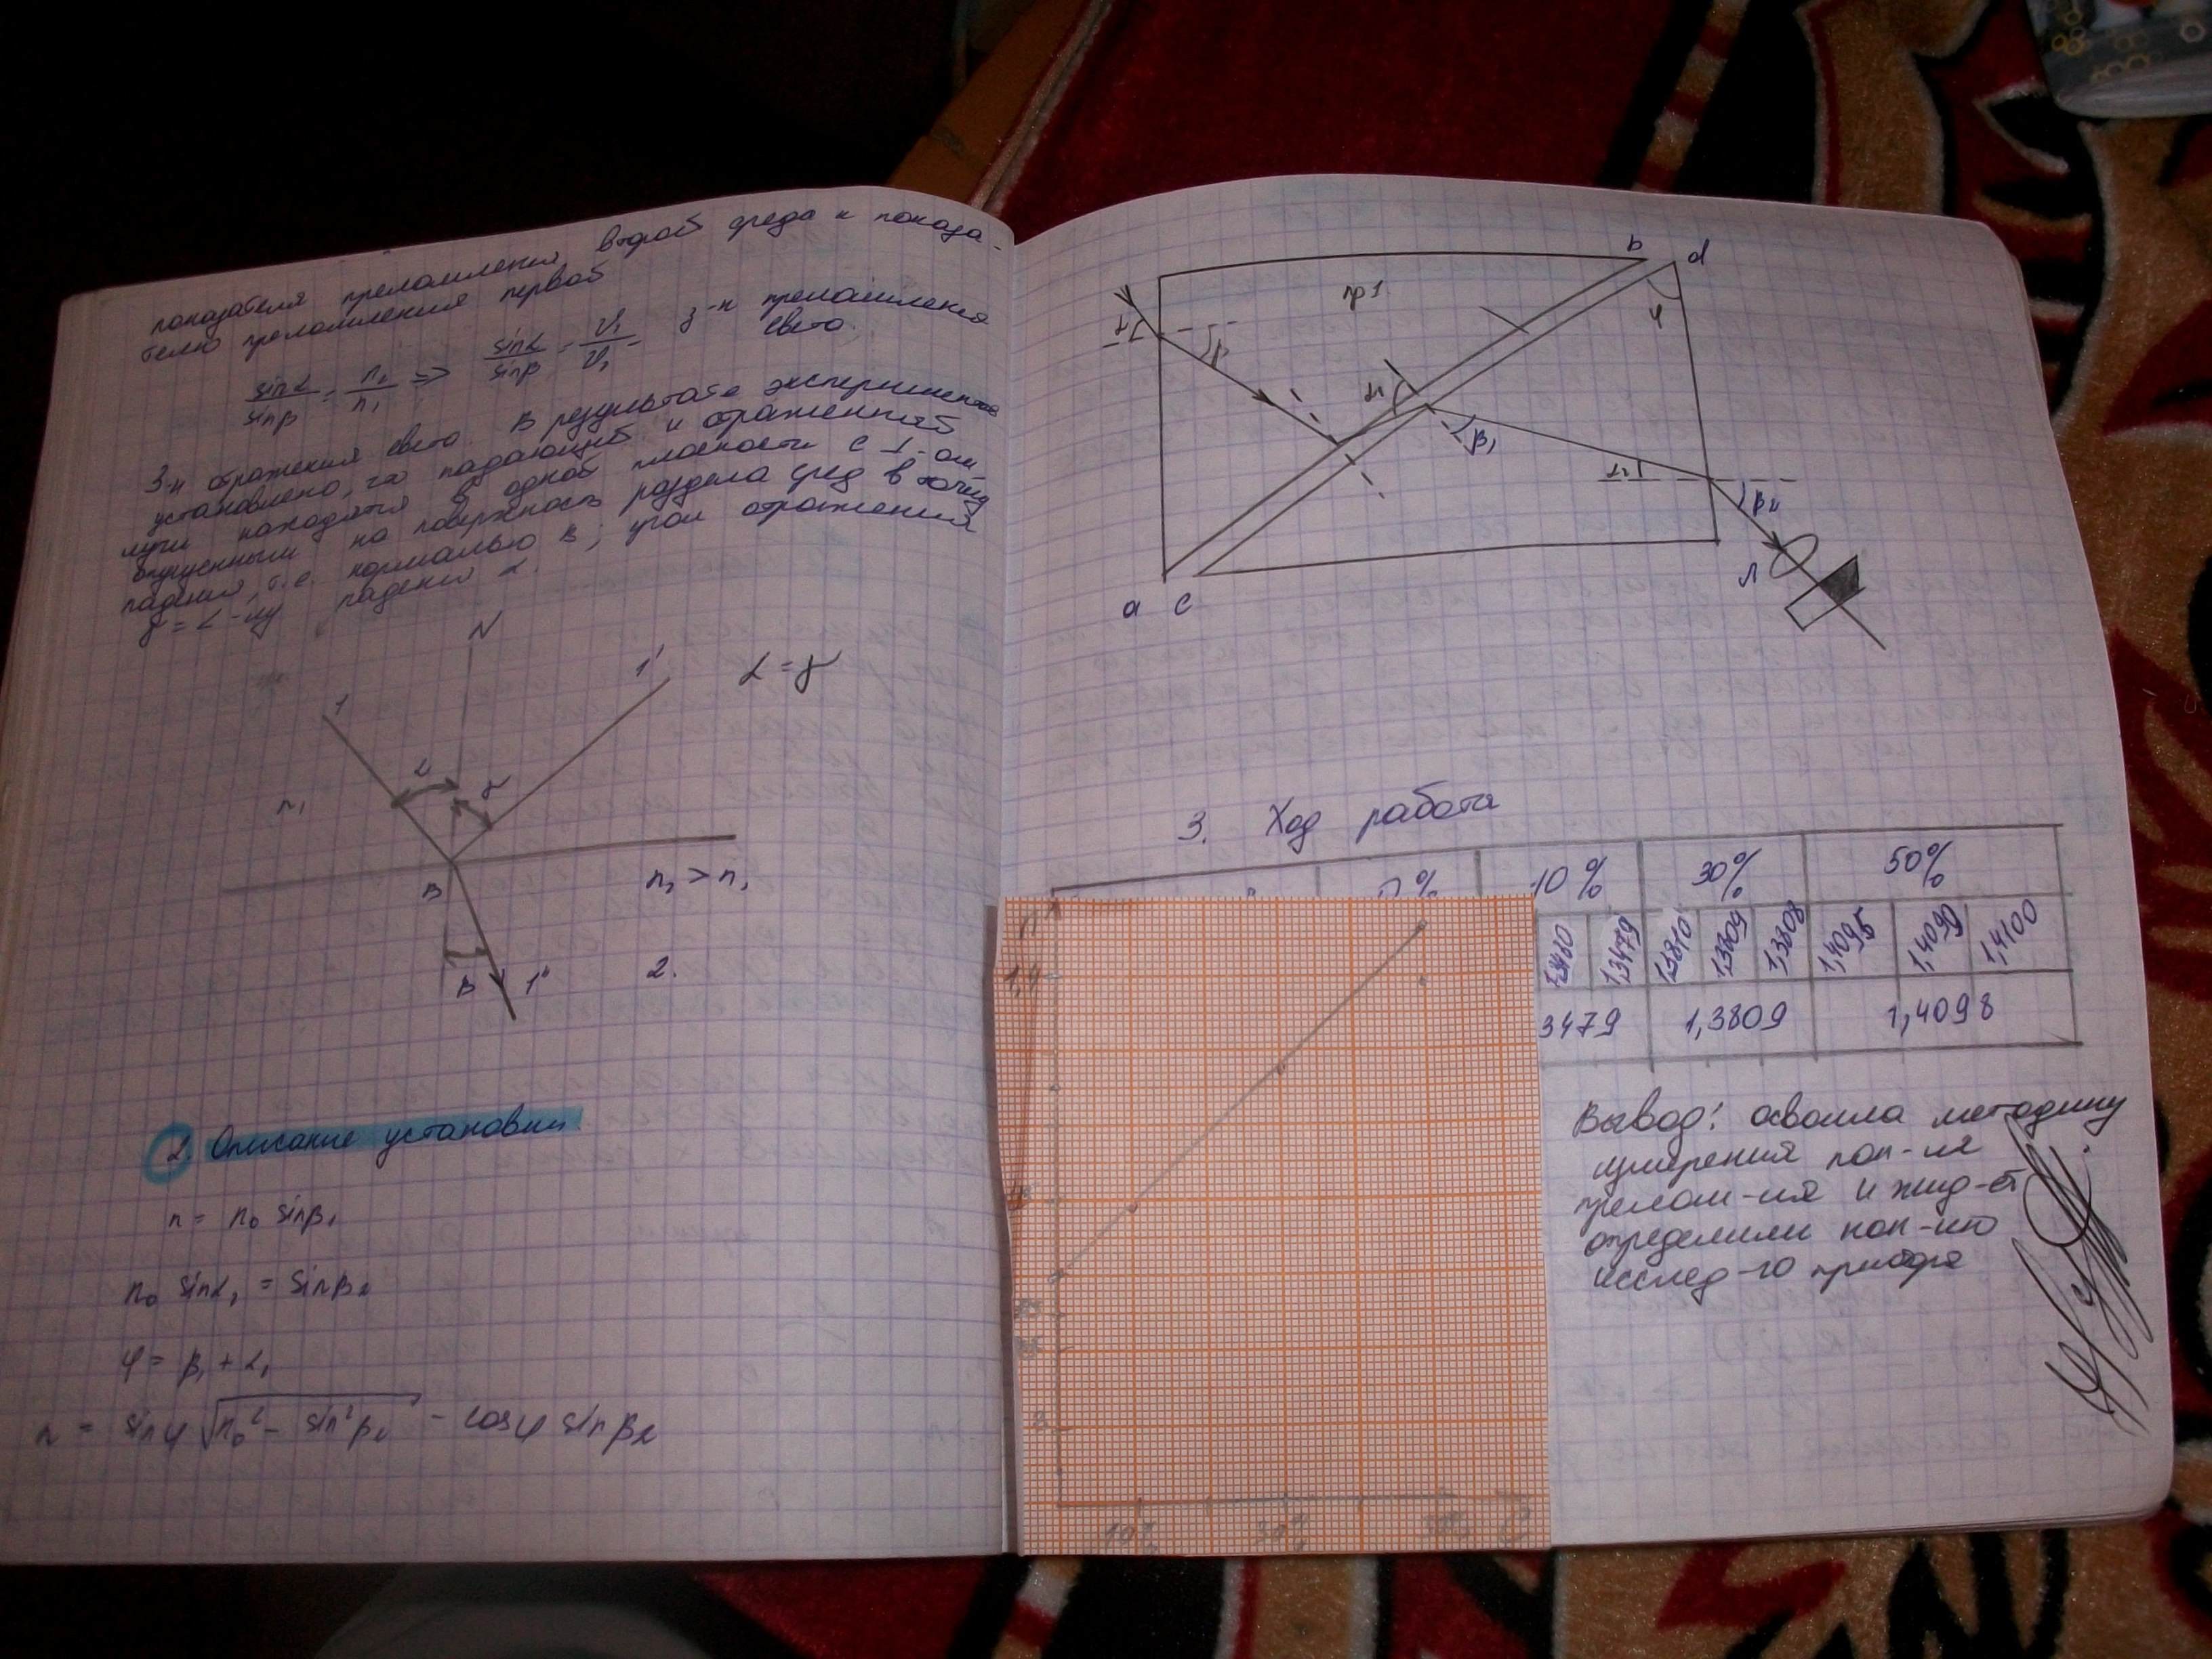 показателя преломления второй среда к показа-
телю преломления первой
sinα/sinβ = n₂/n₁ => sinα/sinβ = υ₁/υ₂ з-н преломления
света
З-н отражения света. В результате экспериментов
установлено, что падающий и отраженный
лучи находятся в одной плоскости с ⊥-ом
опущенным на поверхность раздела сред в точку
падения, т.е. нормалью в; угол отражения
γ = ∠-лу падения α.
N
1
1'
α = γ
α
γ
n₁
B
n₂ > n₁
B
1"
2.
2. Описание установки
n = n₀ sinβ₁
n₀ sinα₁ = sinβ₂
φ = β₁ + α₁
n = sinφ √n₀² - sin²β₂ - cosφ sinβ₂
b
d
пр1
φ
α
β
α₁
β₁
α₂
β₂
Л
a
c
3. Ход работа
10%
30%
50%
1,3479
1,3810
1,3809
1,3808
1,4095
1,4099
1,4100
3479
1,3809
1,4098
n
1,4
10%
30%
50%
Вывод: освоила методику
измерения пок-ля
прелом-ия и жид-ст
определили кон-ию
исслед-го прибора